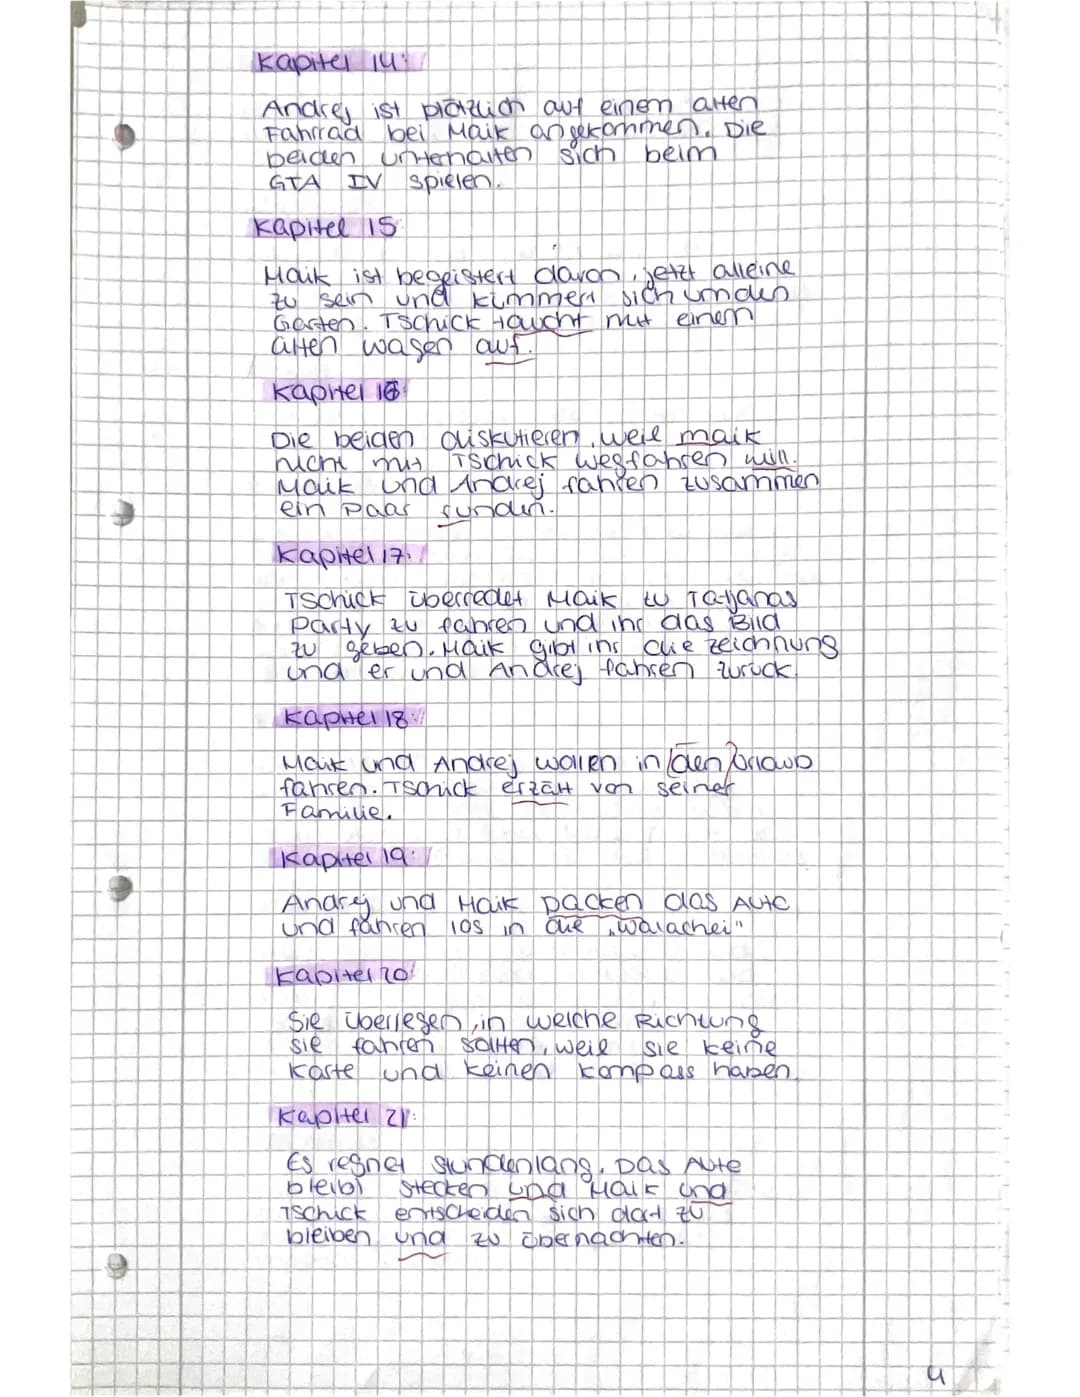 Kapitel 14:
Andrej ist plötzlich auf einem alten
Fahrrad bei Maik angekommen. Die
beiden unterhalten sich beim
GTA IV spielen.
Kapitel 15
Maik ist begeistert davon, jetzt alleine
zu sein und kümmert sich um den
Garten. Tschick taucht mit einem
alten wagen auf.
Kapitel 16:
Die beiden diskutieren, weil maik
nicht mit Tschick wegfahren will.
Maik und Andrej fahren zusammen
ein paar runden.
Kapitel 17:
Tschick überredet Maik zu Tatjanas
Party zu fahren und ihr das Bild
zu geben. Maik gibt ihr die zeichnung
und er und Andrej fahren zurück.
Kapitel 18:
Maik und Andrej wollen in den Urlaub
fahren. Tschick erzält von seiner
Familie.
Kapitel 19:
Andrej und Maik packen das Auto
und fahren los in die „Walachei"
Kapitel 20:
Sie überlegen, in welche Richtung
sie fahren sollten, weil sie keine
Karte und keinen kompass haben.
Kapitel 21:
Es regnet stundenlang. Das Auto
bleibt stecken und Maik und
Tschick entscheiden sich dort zu
bleiben und zu übernachten.
4